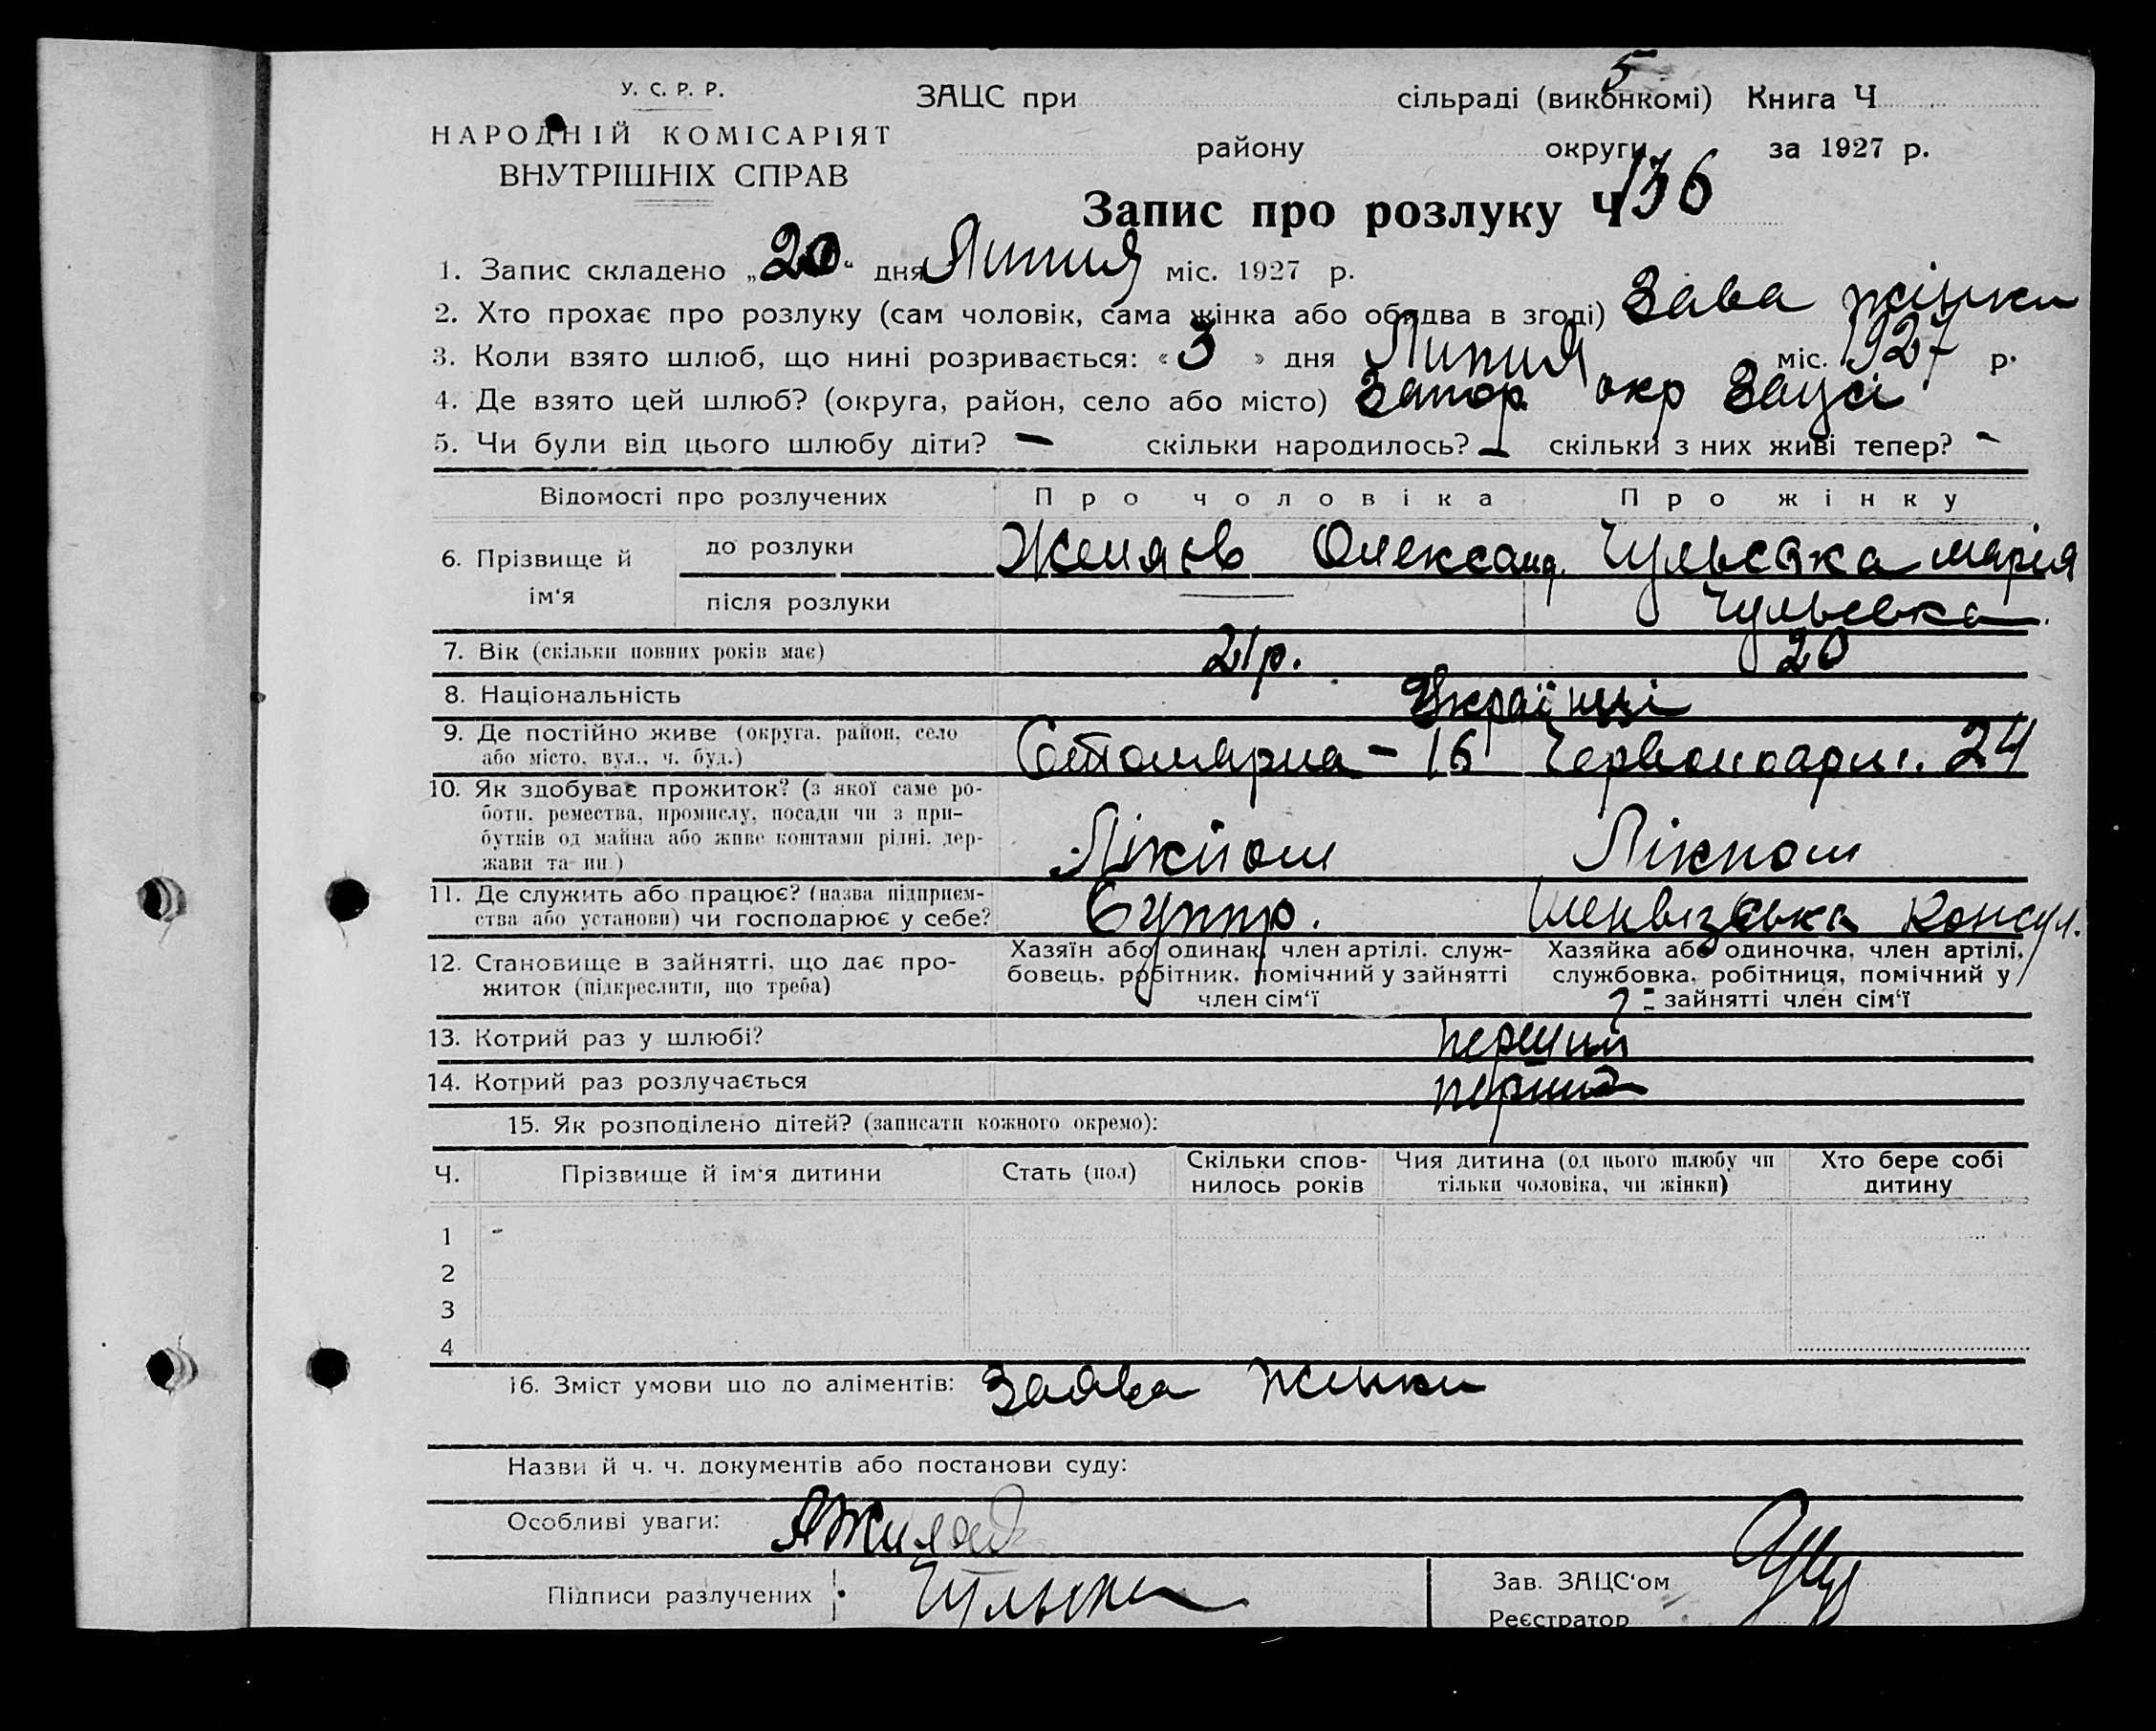 5
У. С. Р. Р.
ЗАЦС при сільраді (виконкомі) Книга Ч
НАРОДНІЙ КОМІСАРІЯТ
ВНУТРІШНІХ СПРАВ
району округи за 1927 р.
Запис про розлуку Ч 136
1. Запис складено „20“ дня Липня міс. 1927 р.
2. Хто прохає про розлуку (сам чоловік, сама жінка або обидва в згоді) Зава жінки
3. Коли взято шлюб, що нині розривається: «3» дня Липня міс. 1927 р.
4. Де взято цей шлюб? (округа, район, село або місто) Запор. окр Зацсі
5. Чи були від цього шлюбу діти? – скільки народилось? – скільки з них живі тепер? –
Відомості про розлучених Про чоловіка Про жінку
6. Прізвище й ім‘я
до розлуки Олександ. Чульська Марія
після розлуки — Чульська
7. Вік (скільки повних років має) 21 р. 20
8. Національність Українці
9. Де постійно живе (округа, район, село або місто, вул., ч. буд.) Столярна – 16 Червоноарм. 24
10. Як здобуває прожиток? (з якої саме роботи, ремества, промислу, посади чи з прибутків од майна або живе коштами рідні, держави та ин.) Лікпом Лікпом
11. Де служить або працює? (назва підприємства або установи) чи господарює у себе? Консул.
12. Становище в зайнятті, що дає прожиток (підкреслити, що треба)
Хазяїн або одинак, член артілі, службовець, робітник, помічний у зайнятті член сім‘ї
Хазяйка або одиночка, член артілі, службовка, робітниця, помічний у зайнятті член сім‘ї
13. Котрий раз у шлюбі? перший
14. Котрий раз розлучається
15. Як розподілено дітей? (записати кожного окремо):
Ч. Прізвище й ім‘я дитини Стать (пол) Скільки сповнилось років Чия дитина (од цього шлюбу чи тільки чоловіка, чи жінки) Хто бере собі дитину
1 -
2
3
4
16. Зміст умови що до аліментів: Заява жінки
Назви й ч. ч. документів або постанови суду:
Особливі уваги:
Підписи разлучених
Зав. ЗАЦС‘ом
Реєстратор